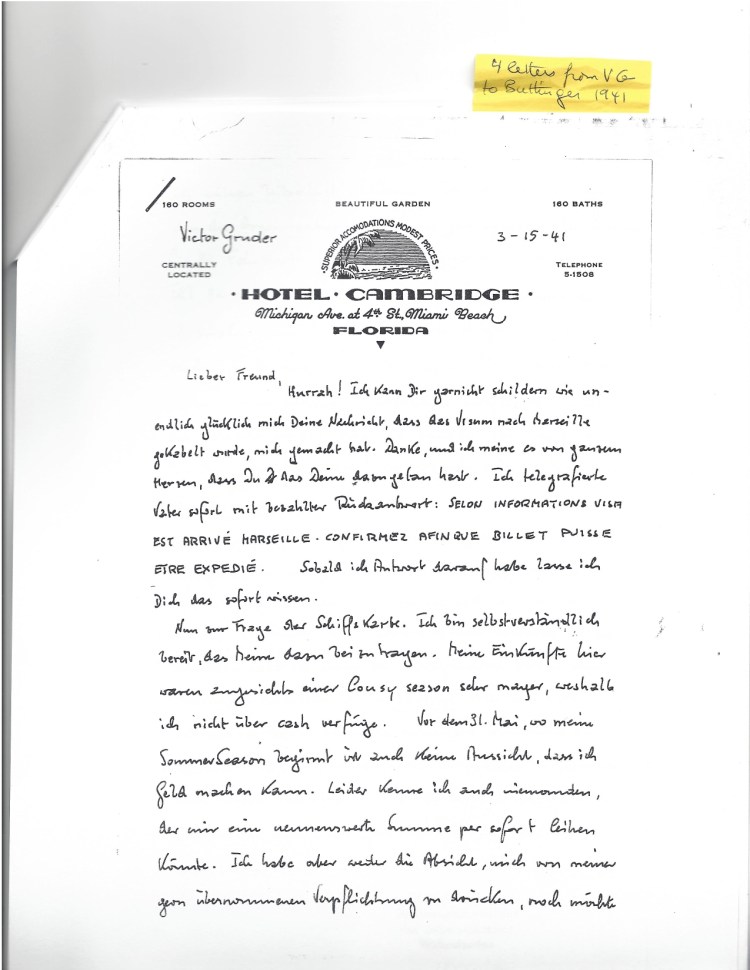 4 letters from VG
to Buttinger 1941
160 ROOMS BEAUTIFUL GARDEN 160 BATHS
Victor Gruder 3-15-41
SUPERIOR ACCOMODATIONS MODEST PRICES
CENTRALLY LOCATED
TELEPHONE 5-1508
· HOTEL · CAMBRIDGE ·
Michigan Ave. at 4th St., Miami Beach
FLORIDA
Lieber Freund,
Hurrah! Ich kann Dir garnicht schildern wie un-
endlich glücklich mich Deine Nachricht, dass das Visum nach Marseille
gekabelt wurde, mich gemacht hat. Danke, und ich meine es von ganzem
Herzen, dass Du das Deine dazu getan hast. Ich telegrafierte
Vater sofort mit bezahlter Rückantwort: SELON INFORMATIONS VISA
EST ARRIVÉ MARSEILLE. CONFIRMEZ AFINQUE BILLET PUISSE
ETRE EXPEDIÉ. Sobald ich Antwort darauf habe lasse ich
Dich das sofort wissen.
Nun zur Frage der Schiffskarte. Ich bin selbstverständlich
bereit, das Meine dazu beizutragen. Meine Einkünfte hier
waren angesichts einer lousy season sehr mager, weshalb
ich nicht über cash verfüge. Vor dem 31. Mai, wo meine
Sommer Season beginnt ist auch keine Aussicht, dass ich
Geld machen kann. Leider kenne ich auch niemanden,
der mir eine nennenswerte Summe per sofort leihen
könnte. Ich habe aber weder die Absicht, mich von meiner
gern übernommenen Verpflichtung zu drücken, noch möchte